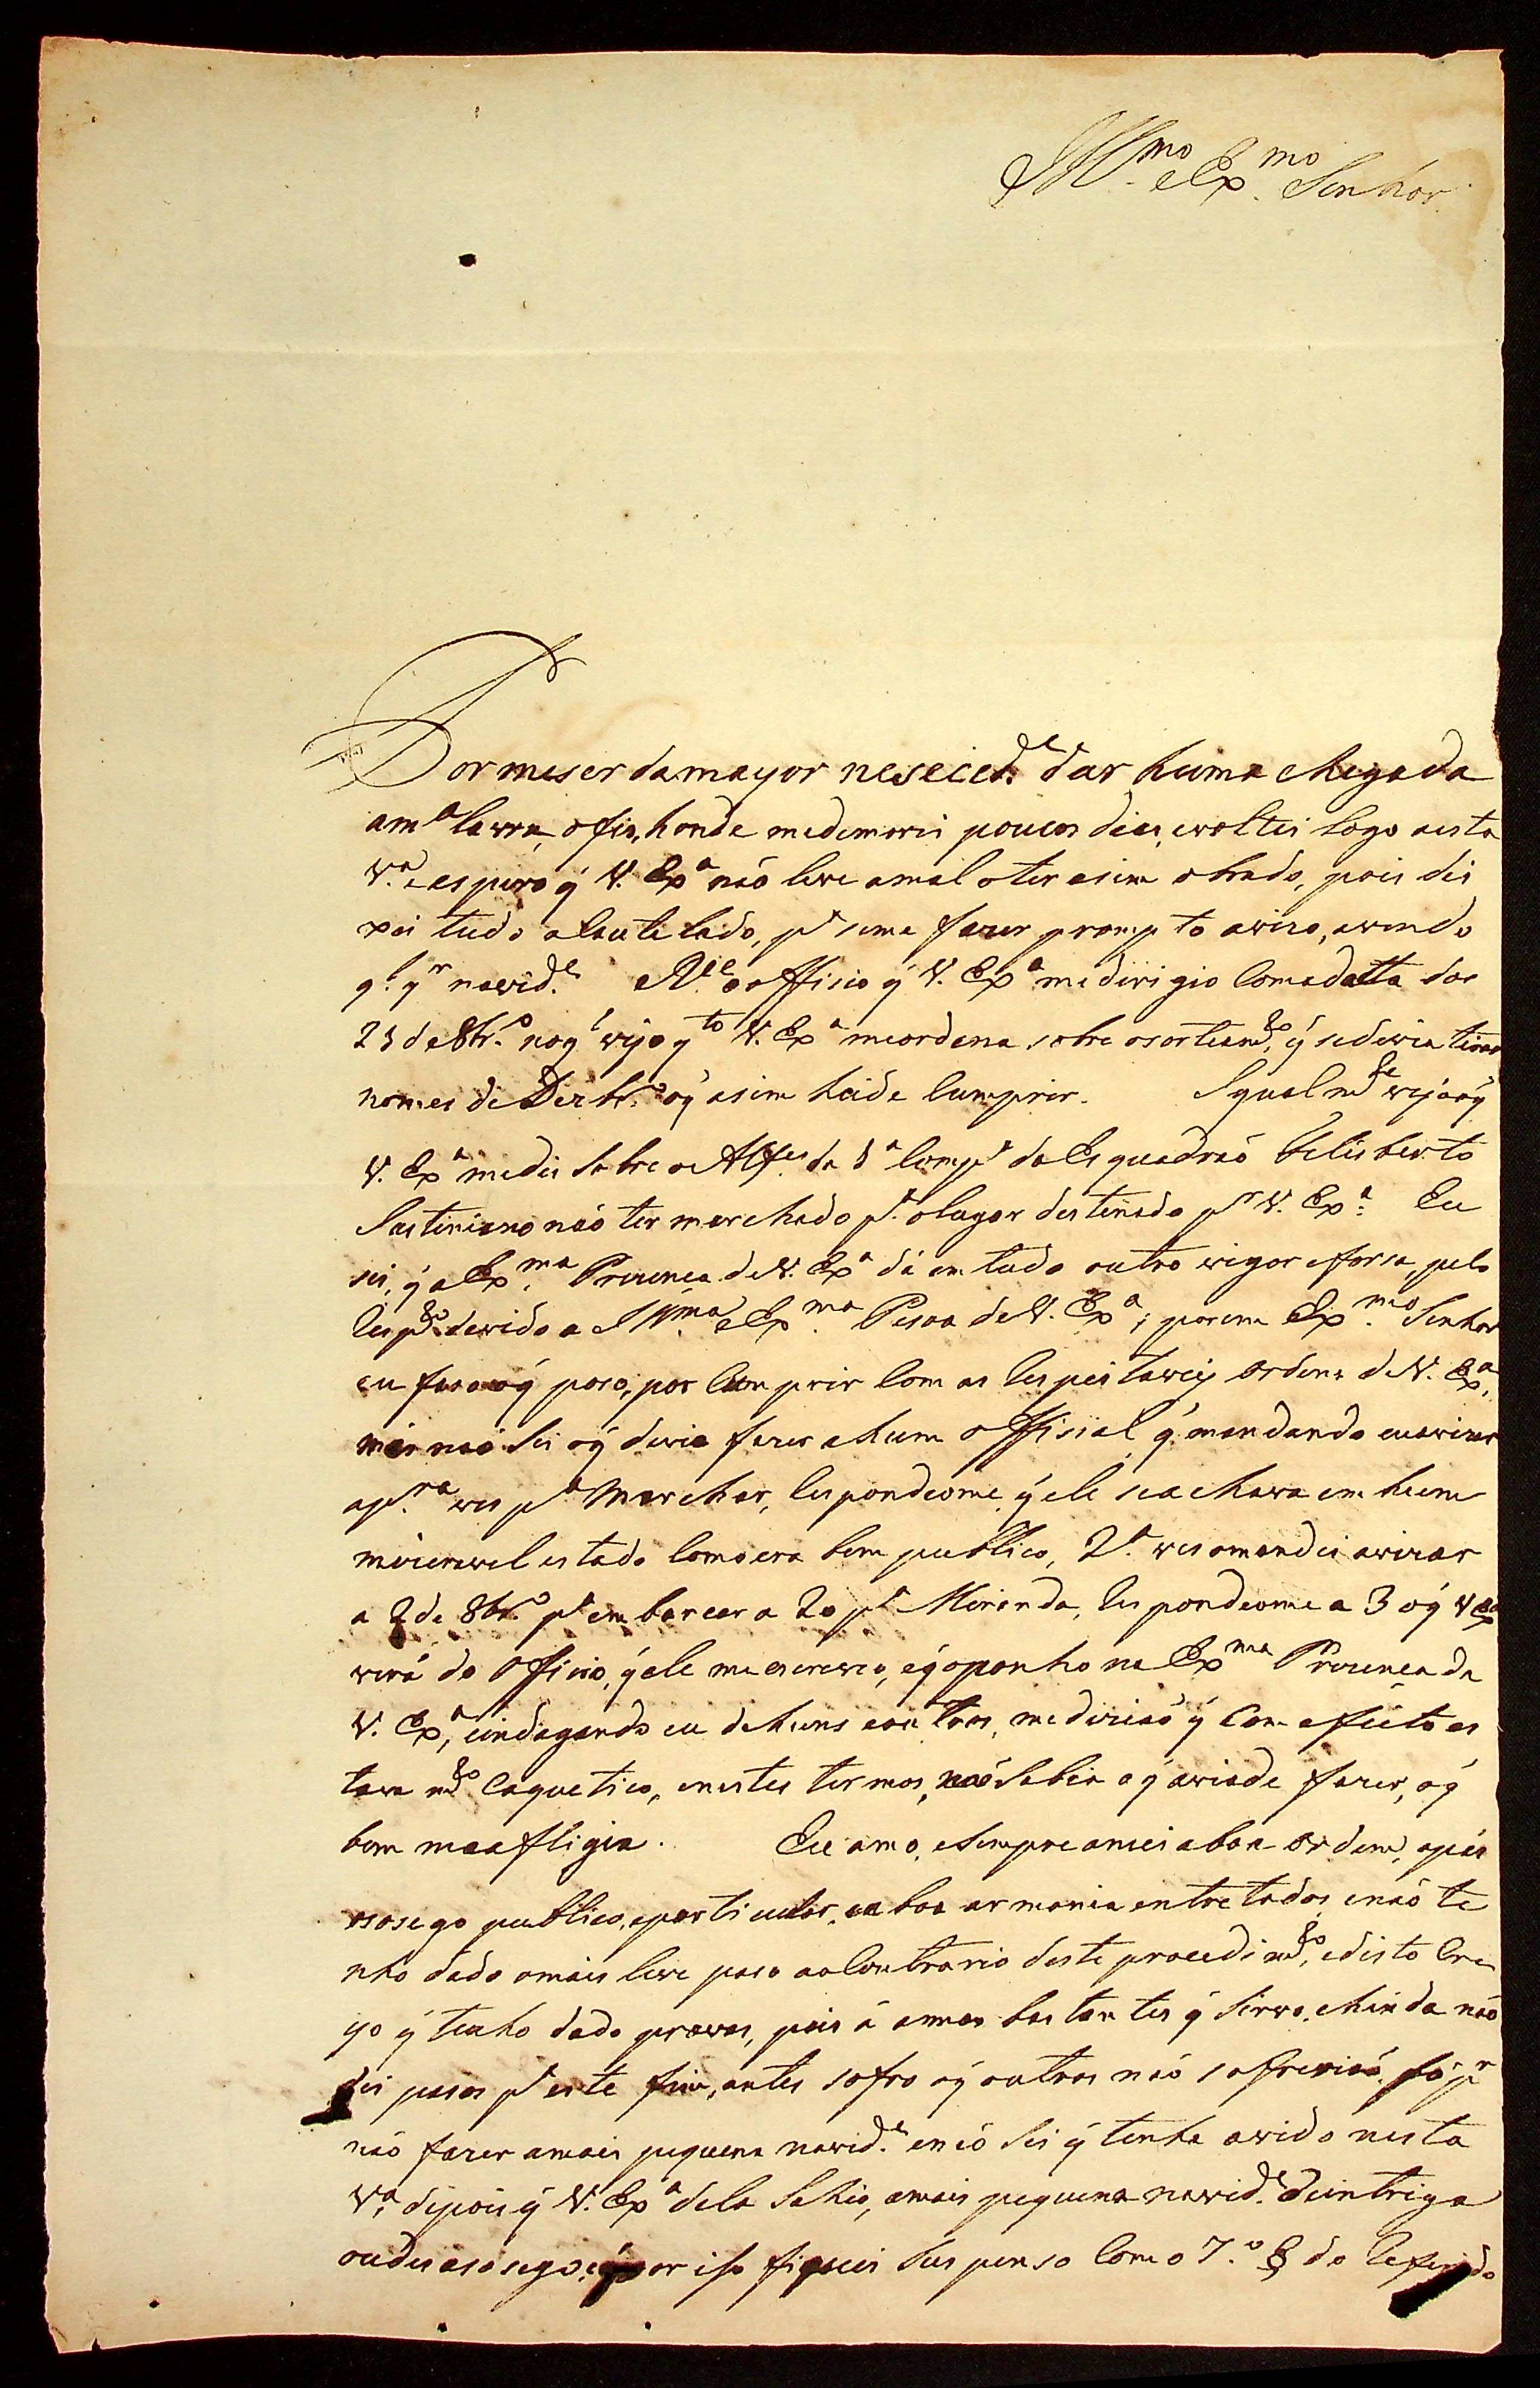 Ill.mo e Ex.mo Senhor
Por me ser da mayor neseced.e dar huma chegada
a m.a lavra, ofis, honde me demorei poucos dias, e voltei logo a esta
V.a e espero q̃ V. Ex.a não leve a mal o ter asim obrado, pois dei
xei tudo acautelado, p.a se me fazer prompto avizo, avendo
q.l q.r novid.e R.e o officio q̃ V. Ex.a me dirigio com a datta dos
23 de 8br.o no q.l vejo q.to V. Ex.a me ordena sobre o sorteam.to, q̃ se devia tirar
no mes de Dezbr.o o q̃ asim heide cumprir. Igualm.te vejo o q̃
V. Ex.a me dis sobre o Alf.es da 1.a Comp.a do Esquadrão Felisberto
Justiniano não ter marchado p.a o lugar destinado p.r V. Ex.a Eu
sei, q̃ a Ex.ma Prezença de V. Ex.a dá em tudo outro vigor e forsa, pelo
resp.to devido a Ill.ma e Ex.ma Pesoa de V. Ex.a; porem Ex.mo Senhor
eu faso o q̃ poso, por cumprir com as respeitaveis ordens de V. Ex.a,
mas não sei o q̃ devia fazer a hum offisial, q̃ mandando eu avizar
a p.ra ves p.a marchar, respondeome, q̃ ele se achava em hum
mizeravel estado como era bem publico, 2.a ves o mandei avizar
a 2 de 8br.o p.a embarcar a 20 p.a Miranda, respondeome a 3 o q̃ V Ex.a
verá do officio, q̃ ele me escreveo, e q̃ o ponho na Ex.ma Prezença de
V. Ex.a, e indagando eu de huns e outros, me dizião q̃ com efeito es
tava m.to caquetico, e nestes termos, não sabia o q̃ avia de fazer, o q̃
bem me afligia. Eu amo, e sempre amei a boa ordem, a pás
o sosego publico, e particular, e a boa armonia entre todos, e não te
nho dado o mais leve paso ao contrario deste procedim.to, e disto cre
yo q̃ tenho dado provas, pois á annos bastantes q̃ sirvo, e hinda não
dei pasos p.a este fim, antes sofro o q̃ outros não sofrerião, só p.r
não fazer a mais pequena novid.e e não sei q̃ tenha avido nesta
V.a, depois q̃ V. Ex.a dela sahio, a mais pequena novid.e de intriga
ou desasosego, e por iso fiquei suspenso com o 7.o § do referido